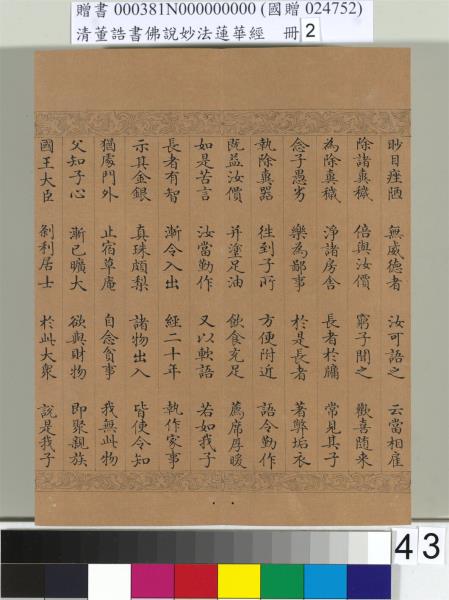 贈書 000381N000000000 (國贈 024752)
清董誥書佛說妙法蓮華經 冊 2
眇目矬陋 無威德者 汝可語之 云當相雇
除諸糞穢 倍與汝價 窮子聞之 歡喜随来
為除糞穢 淨諸房舍 長者於牖 常見其子
念子愚劣 樂為鄙事 於是長者 著弊垢衣
執除糞器 往到子所 方便附近 語令勤作
既益汝價 并塗足油 飲食充足 薦席厚暖
如是苦言 汝當勤作 又以軟語 若如我子
長者有智 漸令入出 經二十年 執作家事
示其金銀 真珠頗梨 諸物出入 皆使令知
猶處門外 止宿草庵 自念貧事 我無此物
父知子心 漸已曠大 欲與財物 即聚親族
國王大臣 剎利居士 於此大衆 說是我子
43